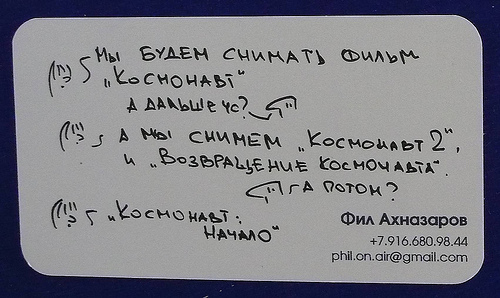 Мы БУДЕМ СНИМАТЬ ФИЛЬМ
„КОСМОНАВТ"
А ДАЛЬШЕ ЧО?
А МЫ СНИМЕМ „КОСМОНАВТ 2",
И „ВОЗВРАЩЕНИЕ КОСМОНАВТА".
А ПОТОМ?
„КОСМОНАВТ:
НАЧАЛО"
Фил Ахназаров
+7.916.680.98.44
phil.on.air@gmail.com